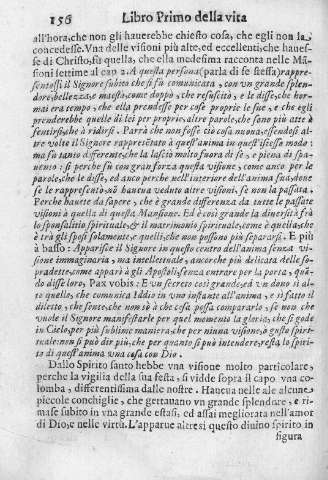 156 Libro Primo della vita
all'hora, che non gli hauerebbe chiesto cosa, che egli non la
concedesse. Vna delle visioni più alte, ed eccellenti, che hauesse
di Christo, fù quella, che ella medesima racconta nelle Mãsioni
settime al cap 2. A questa persona (parla di se stessa) rappresentossi
il Signore subito che si fù comunicata, con vn grande splendore,
bellezza, e maestà, come doppò, che resuscitò, e le disse, che hormai
era tempo, che ella prendesse per cose proprie le sue, e che egli
prenderebbe quelle di lei per proprie, altre parole, che sono più atte à
sentirsi, che à ridirsi. Parrà che non fosse ciò cosa nuoua, essendosi altre
volte il Signore rappresẽtato à quest'anima in quest'istesso modo:
ma fù tanto differente, che la lasciò molto fuora di se, e piena di spauento:
sì perche fù con gran forza questa visione, come anco per le
parole, che le disse, ed anco perche nell'interiore dell'anima sua, doue
se le rappresentò, nõ haueua veduto altre visioni, se non la passata.
Perche hauete da sapere, che è grande differenza da tutte le passate
visioni à quella di questa Mansione. Ed è così grande la diuersità frà
lo sponsalitio spirituale, & il matrimonio spirituale, come è quella, che
è trà gli sposi solamente, e quelli, che non possono più separarsi. E più
à basso: Apparisce il Signore in questo centro dell'anima senza visione
immaginaria, ma intellettuale, ancorche più delicata delle sopradette,
come apparì à gli Apostoli, senza entrare per la porta, quãdo
disse loro, Pax vobis: E vn secreto così grande, ed vn dono sì alto
quello, che comunica Iddio in vno instante all'anima, e sì fatto il
diletto, che sente, che non sò à che cosa possa compararlo, se non che
vuole il Signore manifestarle per quel momento la gloria, che si gode
in Cielo, per più sublime maniera, che per niuna visione, o gusto spirituale:
non si può dir più, che per quanto si può intendere, resta lo spirito
di quest'anima vna cosa con Dio.
Dallo Spirito santo hebbe vna visione molto particolare,
perche la vigilia della sua festa, si vidde sopra il capo vna colomba,
differentissima dalle nostre. Haueua nelle ale alcune
piccole conchiglie, che gettauano vn grande splendore, e rimase
subito in vna grande estasi, ed assai megliorata nell'amor
di Dio, e nelle virtù. L'apparue altresi questo diuino spirito in
figura